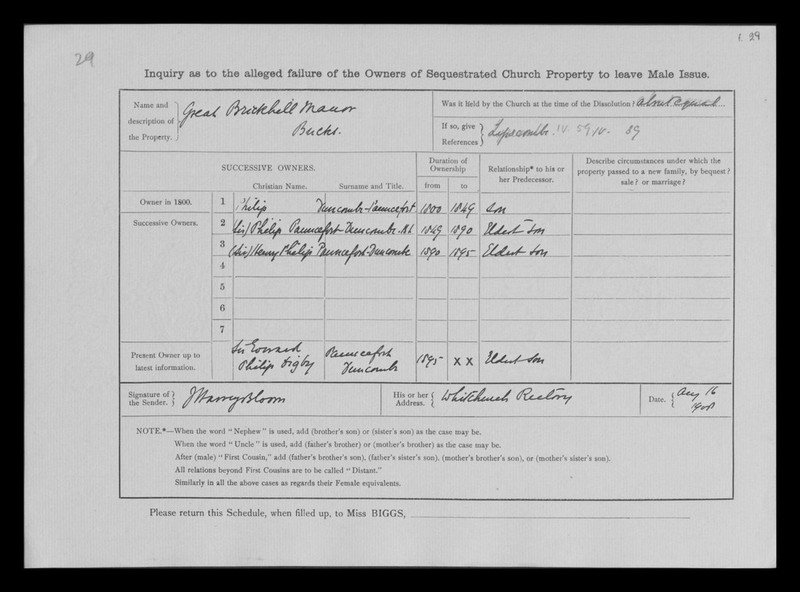 29
f. 29
Inquiry as to the alleged failure of the Owners of Sequestrated Church Property to leave Male Issue.
Name and description of the Property. Great Brickhill Manor Bucks.
Was it held by the Church at the time of the Dissolution?
If so, give References Lipscombs. IV. 59 39
SUCCESSIVE OWNERS.
Christian Name. Surname and Title.
Duration of Ownership
from to
Relationship* to his or her Predecessor.
Describe circumstances under which the property passed to a new family, by bequest? sale? or marriage?
Owner in 1800. 1 Philip Duncombe-Pauncefort 1800 1849 Son
Successive Owners. 2 (Sir) Philip Pauncefort-Duncombe. Bt 1849 1890 Eldest Son
3 (Sir) Henry Philip Pauncefort-Duncombe 1890 1895 Eldest Son
4
5
6
7
Present Owner up to latest information. Sir Everard Philip Digby Pauncefort Duncombe 1895 x x Eldest Son
Signature of the Sender. J Harvey Bloom
His or her Address. Whitchurch Rectory
Date. Aug 16
NOTE.*—When the word "Nephew" is used, add (brother's son) or (sister's son) as the case may be.
When the word "Uncle" is used, add (father's brother) or (mother's brother) as the case may be.
After (male) "First Cousin," add (father's brother's son), (father's sister's son), (mother's brother's son), or (mother's sister's son).
All relations beyond First Cousins are to be called "Distant."
Similarly in all the above cases as regards their Female equivalents.
Please return this Schedule, when filled up, to Miss BIGGS,